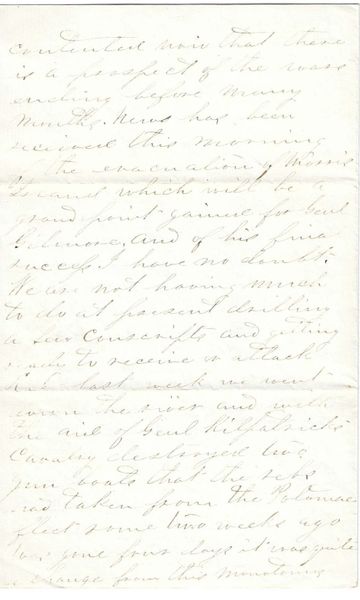 contented now that there
is a prospect of the wars
ending before many
months. News has been
received this morning
of the evacuation of Morris
Island which will be a
grand point gained for Genl
Gilmore, and of his final
success I have no doubt.
We are not having much
to do at present drilling
a few conscripts and getting
ready to receive or attack
last week we went
down the river and with
the aid of Genl Kilpatrick's
Cavalry destroyed two
gun boats that the rebs
had taken from the Potomac
fleet some two weeks ago
was gone four days it was quite
a change from this monotonous